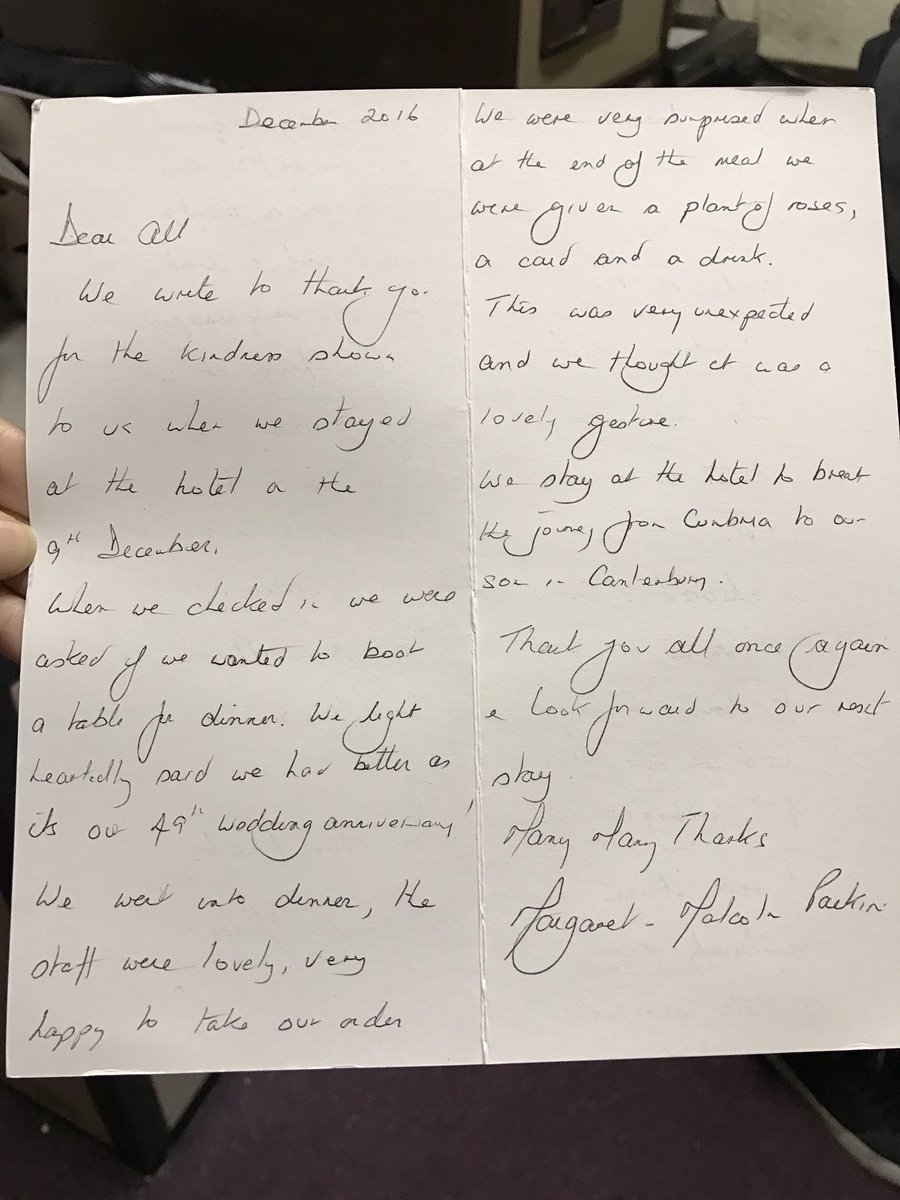 December 2016
Dear All
We write to thank you
for the kindness shown
to us when we stayed
at the hotel on the
9th December.
When we checked in we were
asked if we wanted to book
a table for dinner. We light
heartedly said we had better as
its our 49th wedding anniversary!
We went into dinner, the
staff were lovely, very
happy to take our order
We were very surprised when
at the end of the meal we
were given a plant of roses,
a card and a drink.
This was very unexpected
and we thought it was a
lovely gesture.
We stay at the hotel to break
the journey from Cumbria to our
son in Canterbury.
Thank you all once again
& look forward to our next
stay
Many Many Thanks
Margaret - Malcolm